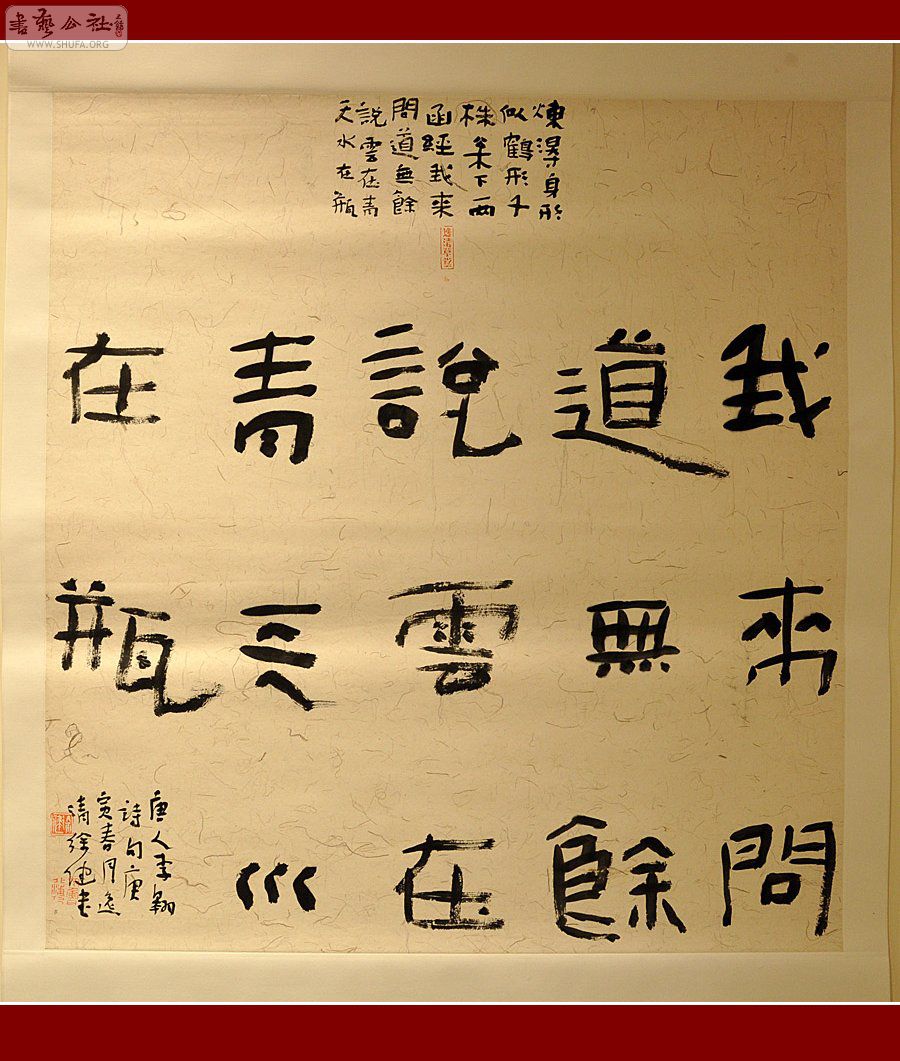 書藝公社
WWW.SHUFA.ORG
煉淂身形
似鶴形千
株枀下两
函經我來
問道無餘
說雲在青
天水在瓶
我來問
道無餘
說雲在
青天巛
在瓶
唐人李翱
詩句庚
寅春月逸
清徐健書